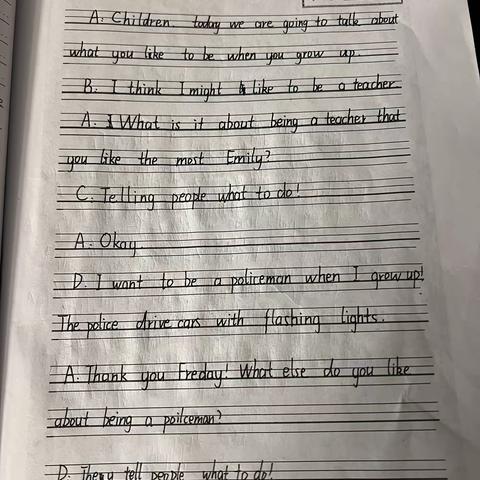 A: Children, today we are going to talk about
what you like to be when you grow up.
B: I think I might like to be a teacher.
A: What is it about being a teacher that
you like the most Emily?
C: Telling people what to do!
A: Okay.
D: I want to be a policeman when I grow up!
The police drive cars with flashing lights.
A: Thank you Freday! What else do you like
about being a poilceman?
D: They tell people what to do!